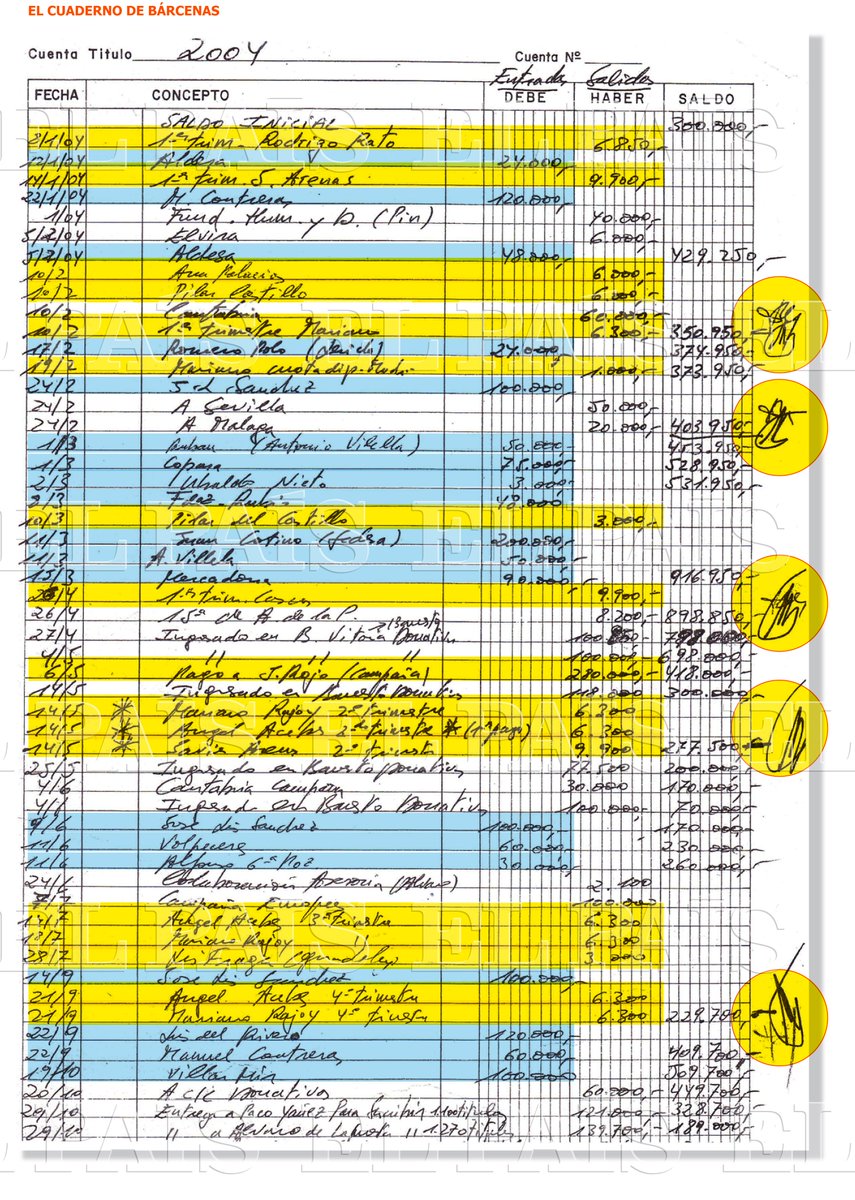 EL CUADERNO DE BÁRCENAS
Cuenta Titulo 2004 Cuenta Nº
Entradas Salidas
FECHA CONCEPTO DEBE HABER SALDO
SALDO INICIAL 300.000,-
2/1/04 1er trim. Rodrigo Rato 6.850,-
12/1/04 Aldesa 24.000,-
14/1/04 1er trim. J. Arenas 9.900,-
22/1/04 M. Contreras 120.000,-
1/04 Fund. Hum. y D. (Pin) 40.000,-
5/2/04 Elvira 6.000,-
5/2/04 Aldesa 48.000,- 429.250,-
10/2 Ana Palacios 6.000,-
10/2 Pilar Castillo 6.000,-
10/2 Cantabria 60.000,-
10/2 1er trimestre Mariano 6.300,- 350.950,-
17/2 Romero Polo 24.000,- 374.950,-
19/2 Mariano cuota 1.000,- 373.950,-
24/2 J L Sanchez 100.000,-
24/2 A Sevilla 50.000,-
24/2 A Malaga 20.000,- 403.950,-
1/3 Rubau (Antonio Vilella) 50.000,- 453.950,-
1/3 Copasa 75.000,- 528.950,-
2/3 Ubaldo Nieto 3.000,- 531.950,-
2/3 48.000
10/3 Pilar del Castillo 3.000,-
11/3 Juan Cotino (Sedesa) 200.000,-
11/3 A. Vilella 50.000,-
15/3 Mercadona 90.000,- 916.950,-
26/4 1er trim. Cascos 9.900,-
26/4 15ª de A. de la P. 8.200,- 898.850,-
27/4 Ingresado en B. Vitoria Banesto Donativos 100.850,- 798.000,-
4/5 " " " 100.000,- 698.000,-
6/5 Pago a J. Rojo (Campaña) 280.000,- 418.000,-
14/5 Ingresado en Banesto Donativos 118.000 300.000,-
14/5 * Mariano Rajoy 2º trimestre 6.300
14/5 * Angel Acebes 2º trimestre * (1er pago) 6.300
14/5 * Javier Arenas 2º trimestre 9.900 277.500,-
25/5 Ingresado en Banesto Donativos 77.500 200.000,-
4/6 Cantabria Campaña 30.000 170.000,-
4/6 Ingresado en Banesto Donativos 100.000,- 70.000,-
9/6 Jose Luis Sanchez 100.000,- 170.000,-
11/6 Volpeceres 60.000,- 230.000,-
11/6 Alfonso Gª Poz 30.000,- 260.000,-
24/6 Colaboración Asesoria (Alvaro) 2.100
7/7 Campaña Europea 100.000
14/7 Angel Acebes 3º trimestre 6.300
18/7 Mariano Rajoy " 6.300
28/7 Luis Fraga 3.000
14/9 Jose Luis Sanchez 100.000,-
21/9 Angel Acebes 4º trimestre 6.300
21/9 Mariano Rajoy 4º trimestre 6.300 229.700,-
22/9 Luis del Rivero 120.000,-
22/9 Manuel Contreras 60.000,- 409.700,-
19/10 Villar Mir 100.000 509.700,-
20/10 A c/c Donativos 60.000,- 449.700,-
29/10 Entrega a Paco Yañez Para Suscribir 1100 titulos 121.000,- 328.700,-
29/10 " a Alvaro de Lapuerta " 1270 titulos 139.700,- 189.000,-
EL PAIS EL PAIS